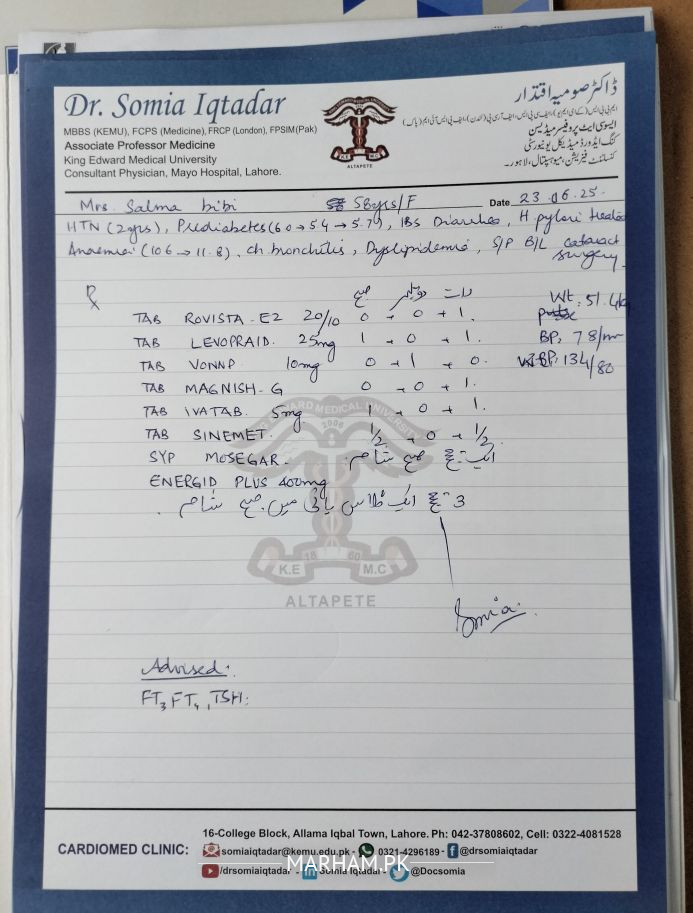 Dr. Somia Iqtadar
MBBS (KEMU), FCPS (Medicine), FRCP (London), FPSIM(Pak)
Associate Professor Medicine
King Edward Medical University
Consultant Physician, Mayo Hospital, Lahore.
K.E M.C
ALTAPETE
ڈاکٹر صومیہ اقتدار
ایم بی بی ایس (کے ای ایم یو)، ایف سی پی ایس، ایف آر سی پی (لندن)، ایف پی ایس آئی ایم (پاک)
ایسوسی ایٹ پروفیسر میڈیسن
کنگ ایڈورڈ میڈیکل یونیورسٹی
کنسلٹنٹ فزیشن، میو ہسپتال، لاہور۔
Mrs. Salma bibi 58yrs/F Date 23.06.25.
HTN (2yrs), Prediabetes (6.0 → 5.4 → 5.7), IBS Diarrhea, H pylori treated
Anaemia (10.6 → 11.8), ch. bronchitis, Dyslipidemia, S/P B/L cataract surgery
صبح دوپہر رات
Wt: 51.4kg
TAB ROVISTA-EZ 20/10 0 + 0 + 1.
TAB LEVOPRAID. 25mg 1 + 0 + 1. BP, 78/m
TAB VONNP 10mg 0 + 1 + 0. BP: 134/80
TAB MAGNISH-G 0 + 0 + 1.
TAB IVATAB. 5mg 1 + 0 + 1.
TAB SINEMET. 1/2 + 0 + 1/2.
SYP MOSEGAR. ایک چمچ صبح شام
ENERGID PLUS 400mg
3 چمچ ایک گلاس پانی میں صبح شام
EDWARD MEDICAL UNIVERSITY
2006
18 60
K.E M.C
ALTAPETE
Somia.
Advised:
FT3, FT4, TSH:
16-College Block, Allama Iqbal Town, Lahore. Ph: 042-37808602, Cell: 0322-4081528
CARDIOMED CLINIC: somiaiqtadar@kemu.edu.pk - 0321-4296189 - @drsomiaiqtadar
/drsomiaiqtadar - Somia Iqtadar - @Docsomia
MARHAM.PK